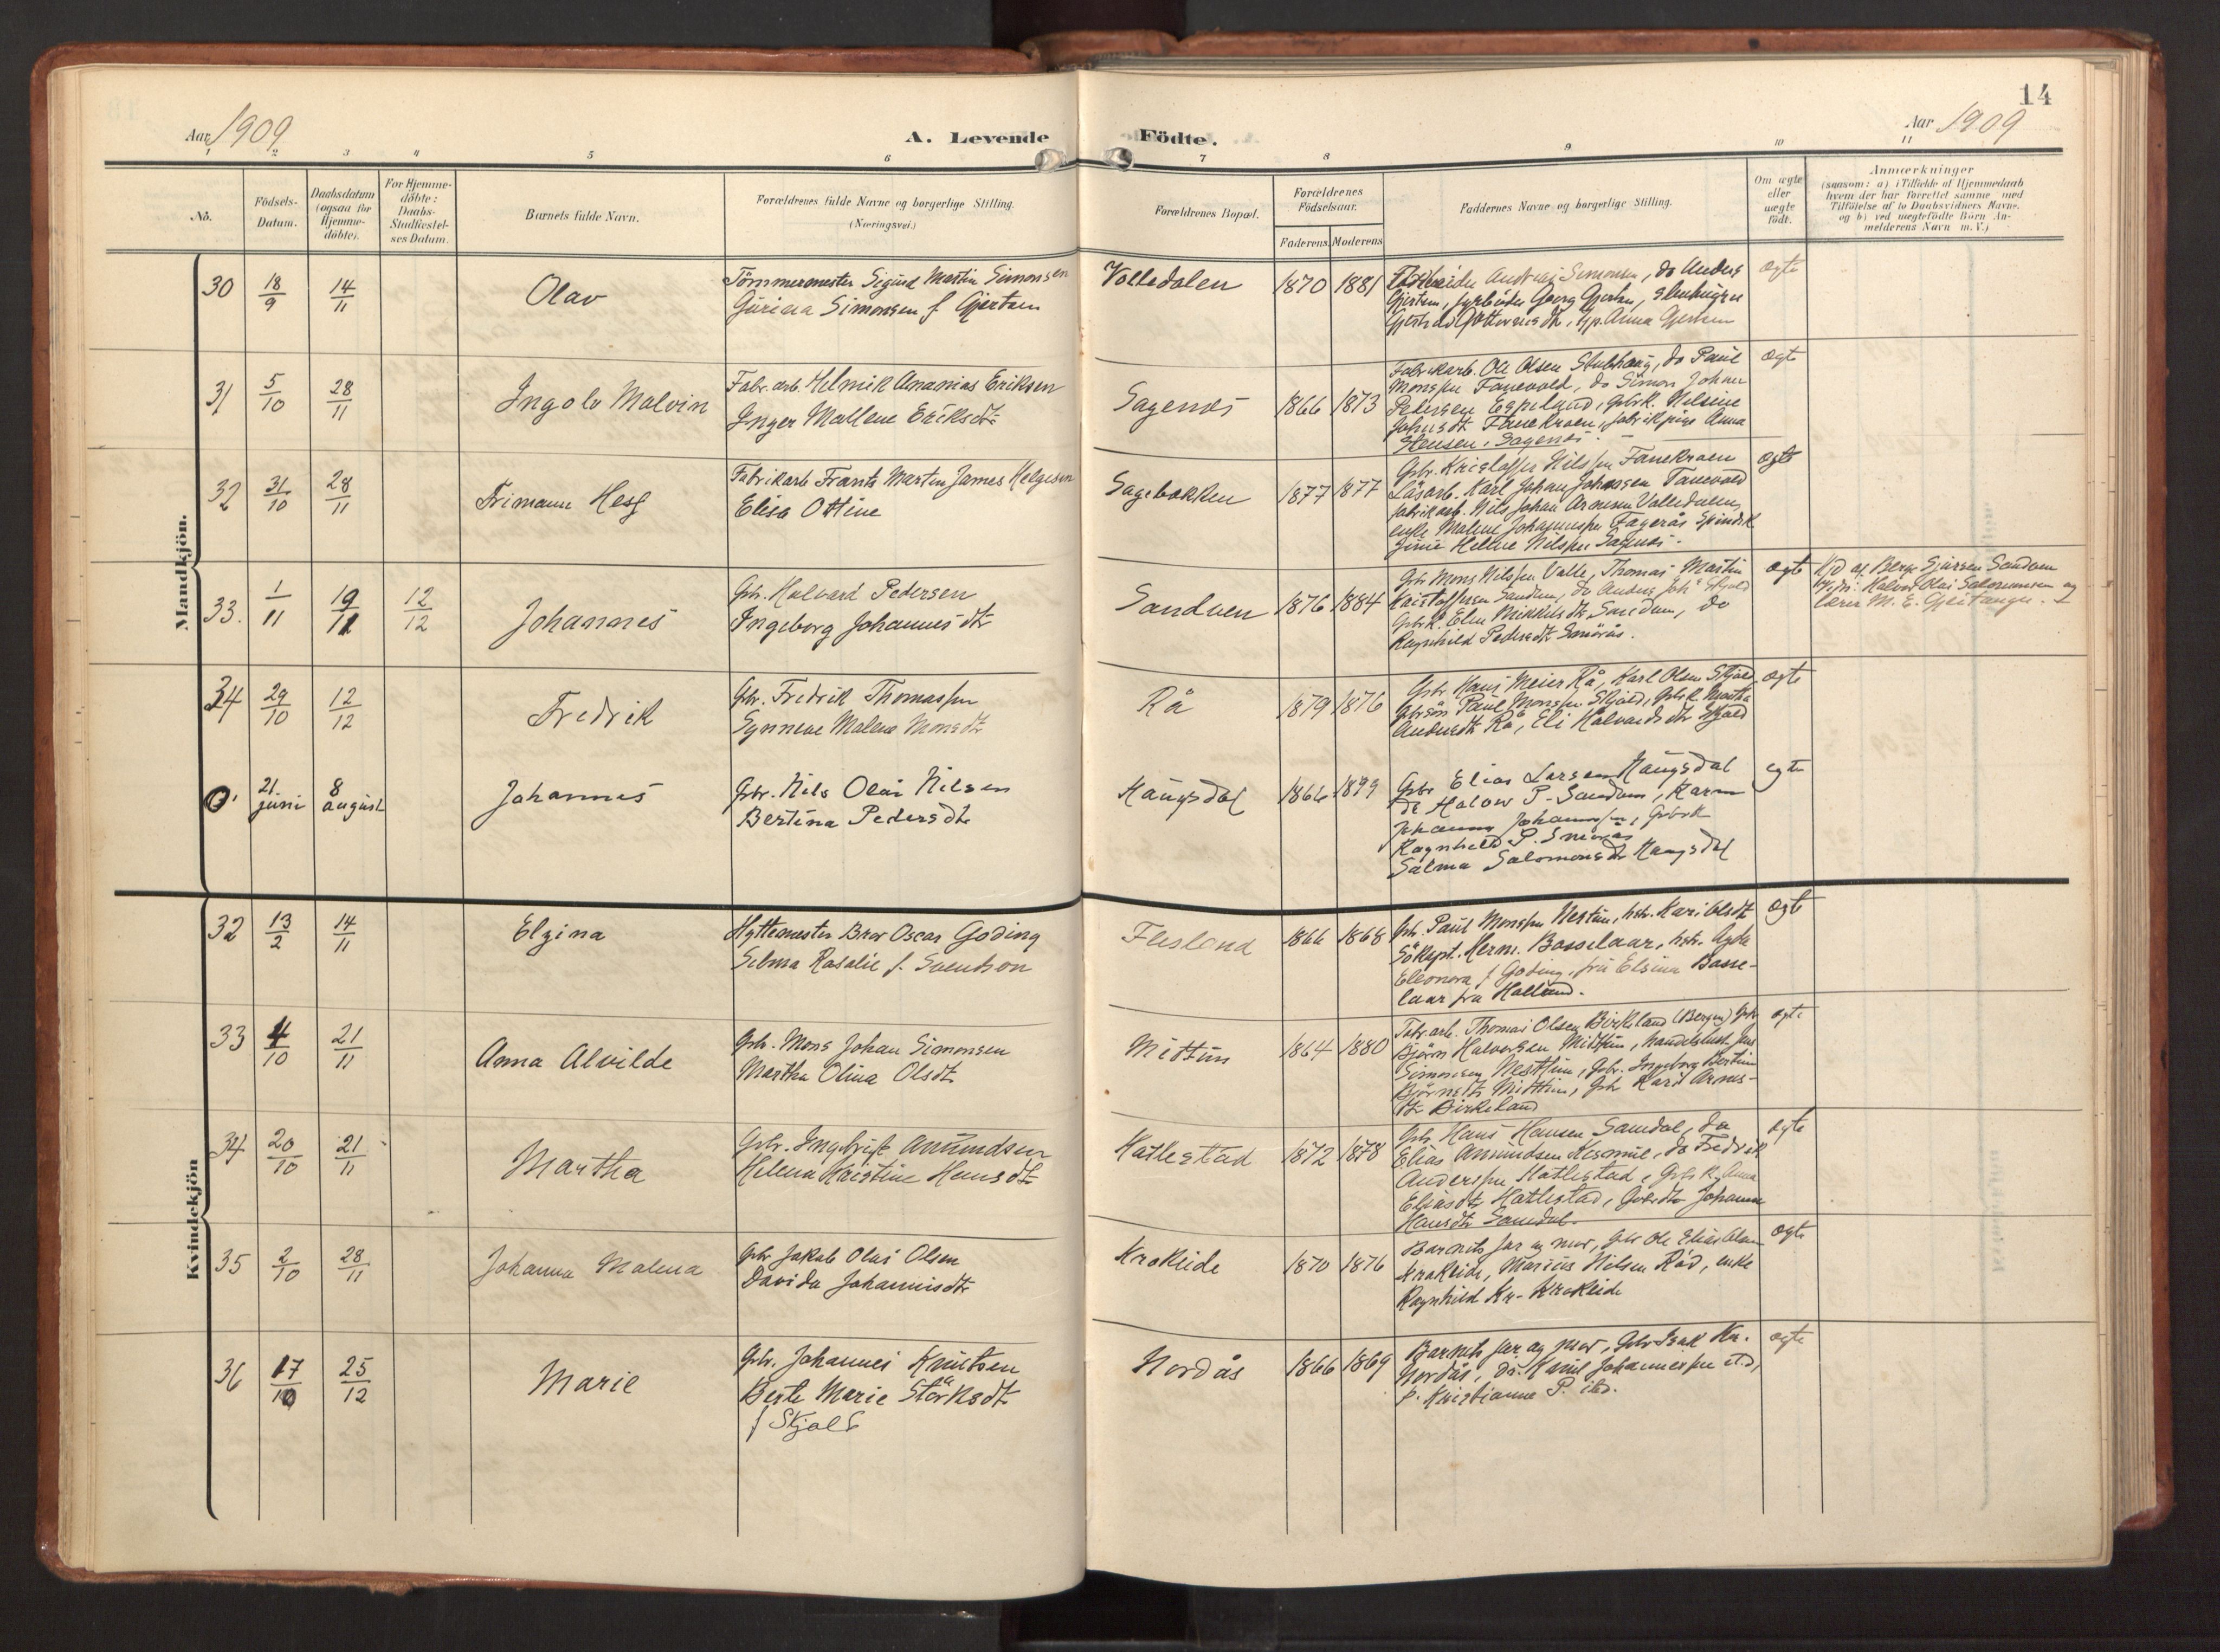 14
Aar 1909
A. Levende Födte.
Aar 1909
1 2 3 4 5 6 7 8 9 10 11
No.
Födsels-
Datum.
Daabsdatum
(ogsaa for
Hjemme-
döbte).
For Hjemme-
döbte:
Daabs-
Stadfestel-
ses Datum.
Barnets fulde Navn.
Forældrenes fulde Navne og borgerlige Stilling.
(Næringsvei.)
Forældrenes Bopæl.
Forældrenes
Födselsaar.
Faderens. Moderens
Faddernes Navne og borgerlige Stilling.
Om ægte
eller
uægte
født.
Anmærkninger
(saasom: a) i Tilfælde af Hjemmedaab
hvem der har forrettet samme med
Tilföielse af to Daabsvidners Navne.
og b) ved uægtefödte Börn An-
melderens Navn m. V.)
Mandkjön.
30 18/9 14/11 Olav
Tömmermester Sigurd Martin Simonsen
Simonsen f Gjertsen
Volledalen 1870 1881
Simonsen, do Anders
Gjertsen, Georg Gjertsen,
Anna Gjertsen
ægte
31 5/10 28/11 Ingolv Malvin
Fabr. arb. Helmik Ananias Eriksen
Inger Mallene Eriksdtr
Sagenes 1866 1873
Fabrikarb. Ole Olsen Stubhaug, do Paul
Monssen Fanevold, do Simon Johan
Pedersen Espeland, gbrk. Nilsine
Johnsdt Fanekroen, fabrikpige Anna
Stensen, Sagenes.
ægte
32 31/10 28/11 Frimann Helg
Fabrikarb Frants Martin James Helgesen
Elisa Ottine
Sagebakken 1877 1877
Gbr. Kristoffer Nilssen Fanekroen
Karl Johan Johnsen Fanevold
fabrikarb. Nils Johan Arnesen Volledalen
enke Malene Fagerås
Helene Nilssen Sagenes.
ægte
33. 1/11 19/12 12/12 Johannes
Gbr. Halvard Pedersen
Ingeborg Johannesdtr
Sandven 1876 1884
Gbr Mons Nilssen Valle, Thomas Martin
Kristoffersen Sandven, do Anders Joh. Skjold
Gbrk. Elen Mikkelsdtr Sandven, do
Ragnhild Pedersdtr Smörås.
ægte
Hjd af Berge Sjursen Sandven
Halvor Olai Salomonsen og
lærer M. E. Gjeitanger.
34 29/10 12/12 Fredrik
Gbr. Fredrik Thomassen
Synneve Malene Monsdtr
Rå 1879 1876
Gbr Hans Meier Rå, Karl Olsen Skjold
gbrsön Paul Monssen Skjold, gbrk. Martha
Andersdt Rå, Eli Halvardsdtr Skjold
ægte
0. 21. juni 8 august Johannes
Gbr. Nils Olai Nilsen
Bertina Pedersdtr
Haugsdal 1866 1879
Gbr Elias Larsen Haugsdal
do Halow P. Sandven, Karen
Johanne Johannessen, Gbrk
Ragnhild P. Smørås
Salma Salomonsdtr Haugsdal
egte
Kvindekjön
32 13/2 14/11 Elzina
Hyttemester Bror Oscar Goding
Selma Rosalie f. Svendson
Flesland 1866 1868
Gbr. Paul Monssen Nestun, hstr. Kari Olsdt
Sökapt. Herm. Bosselaar, hstr. Agda
Eleonora f Goding, frü Elsina Bosse-
laar fra Holland.
ægte
33 4/10 21/11 Anna Alvilde
Gbr. Mons Johan Simonsen
Martha Olina Olsdtr
Midtun 1864 1880
Fabr.arb. Thomas Olsen Birkeland (Bergen) Gbr
Björn Halvorsen Midttun, handelsbest Jens
Simonsen Nesttun, Gbr. Ingeborg Bertine
Björnsdtr Midttun, Gbr Kari Arnes-
dtr Birkeland
ægte
34 20/10 21/11 Martha
Gbr. Ingebrigt Anundsen
Helena Kristine Hansdtr
Hatlestad 1872 1878
Gbr Hans Hansen Samdal, do
Elias Amundsen, do Fredrik
Anderssen Hatlestad, Gbrk. Anna
Eliasdtr Hatlestad, Gbrdtr Johanna
Hansdtr Samdal.
ægte
35 2/10 28/11 Johanna Malena
Gbr. Jakob Olai Olsen
Davida Johannisdtr
Krokeide 1870 1876
Barnets far og mor, Gbr Ole Elias Olsen
Krokeide, Marius Nilsen Röd, enke
Ragnhild Kr. Krokeide
ægte
36 17/10 25/12 Marie
Gbr. Johannes Knutsen
Berte Marie Störksdtr
f Skjold
Nordås 1866 1869
Barnets far og mor, Gbr Isak Kn.
Nordås, do. Knut Johannessen itd.,
p. Kristianne P. itd.
ægte